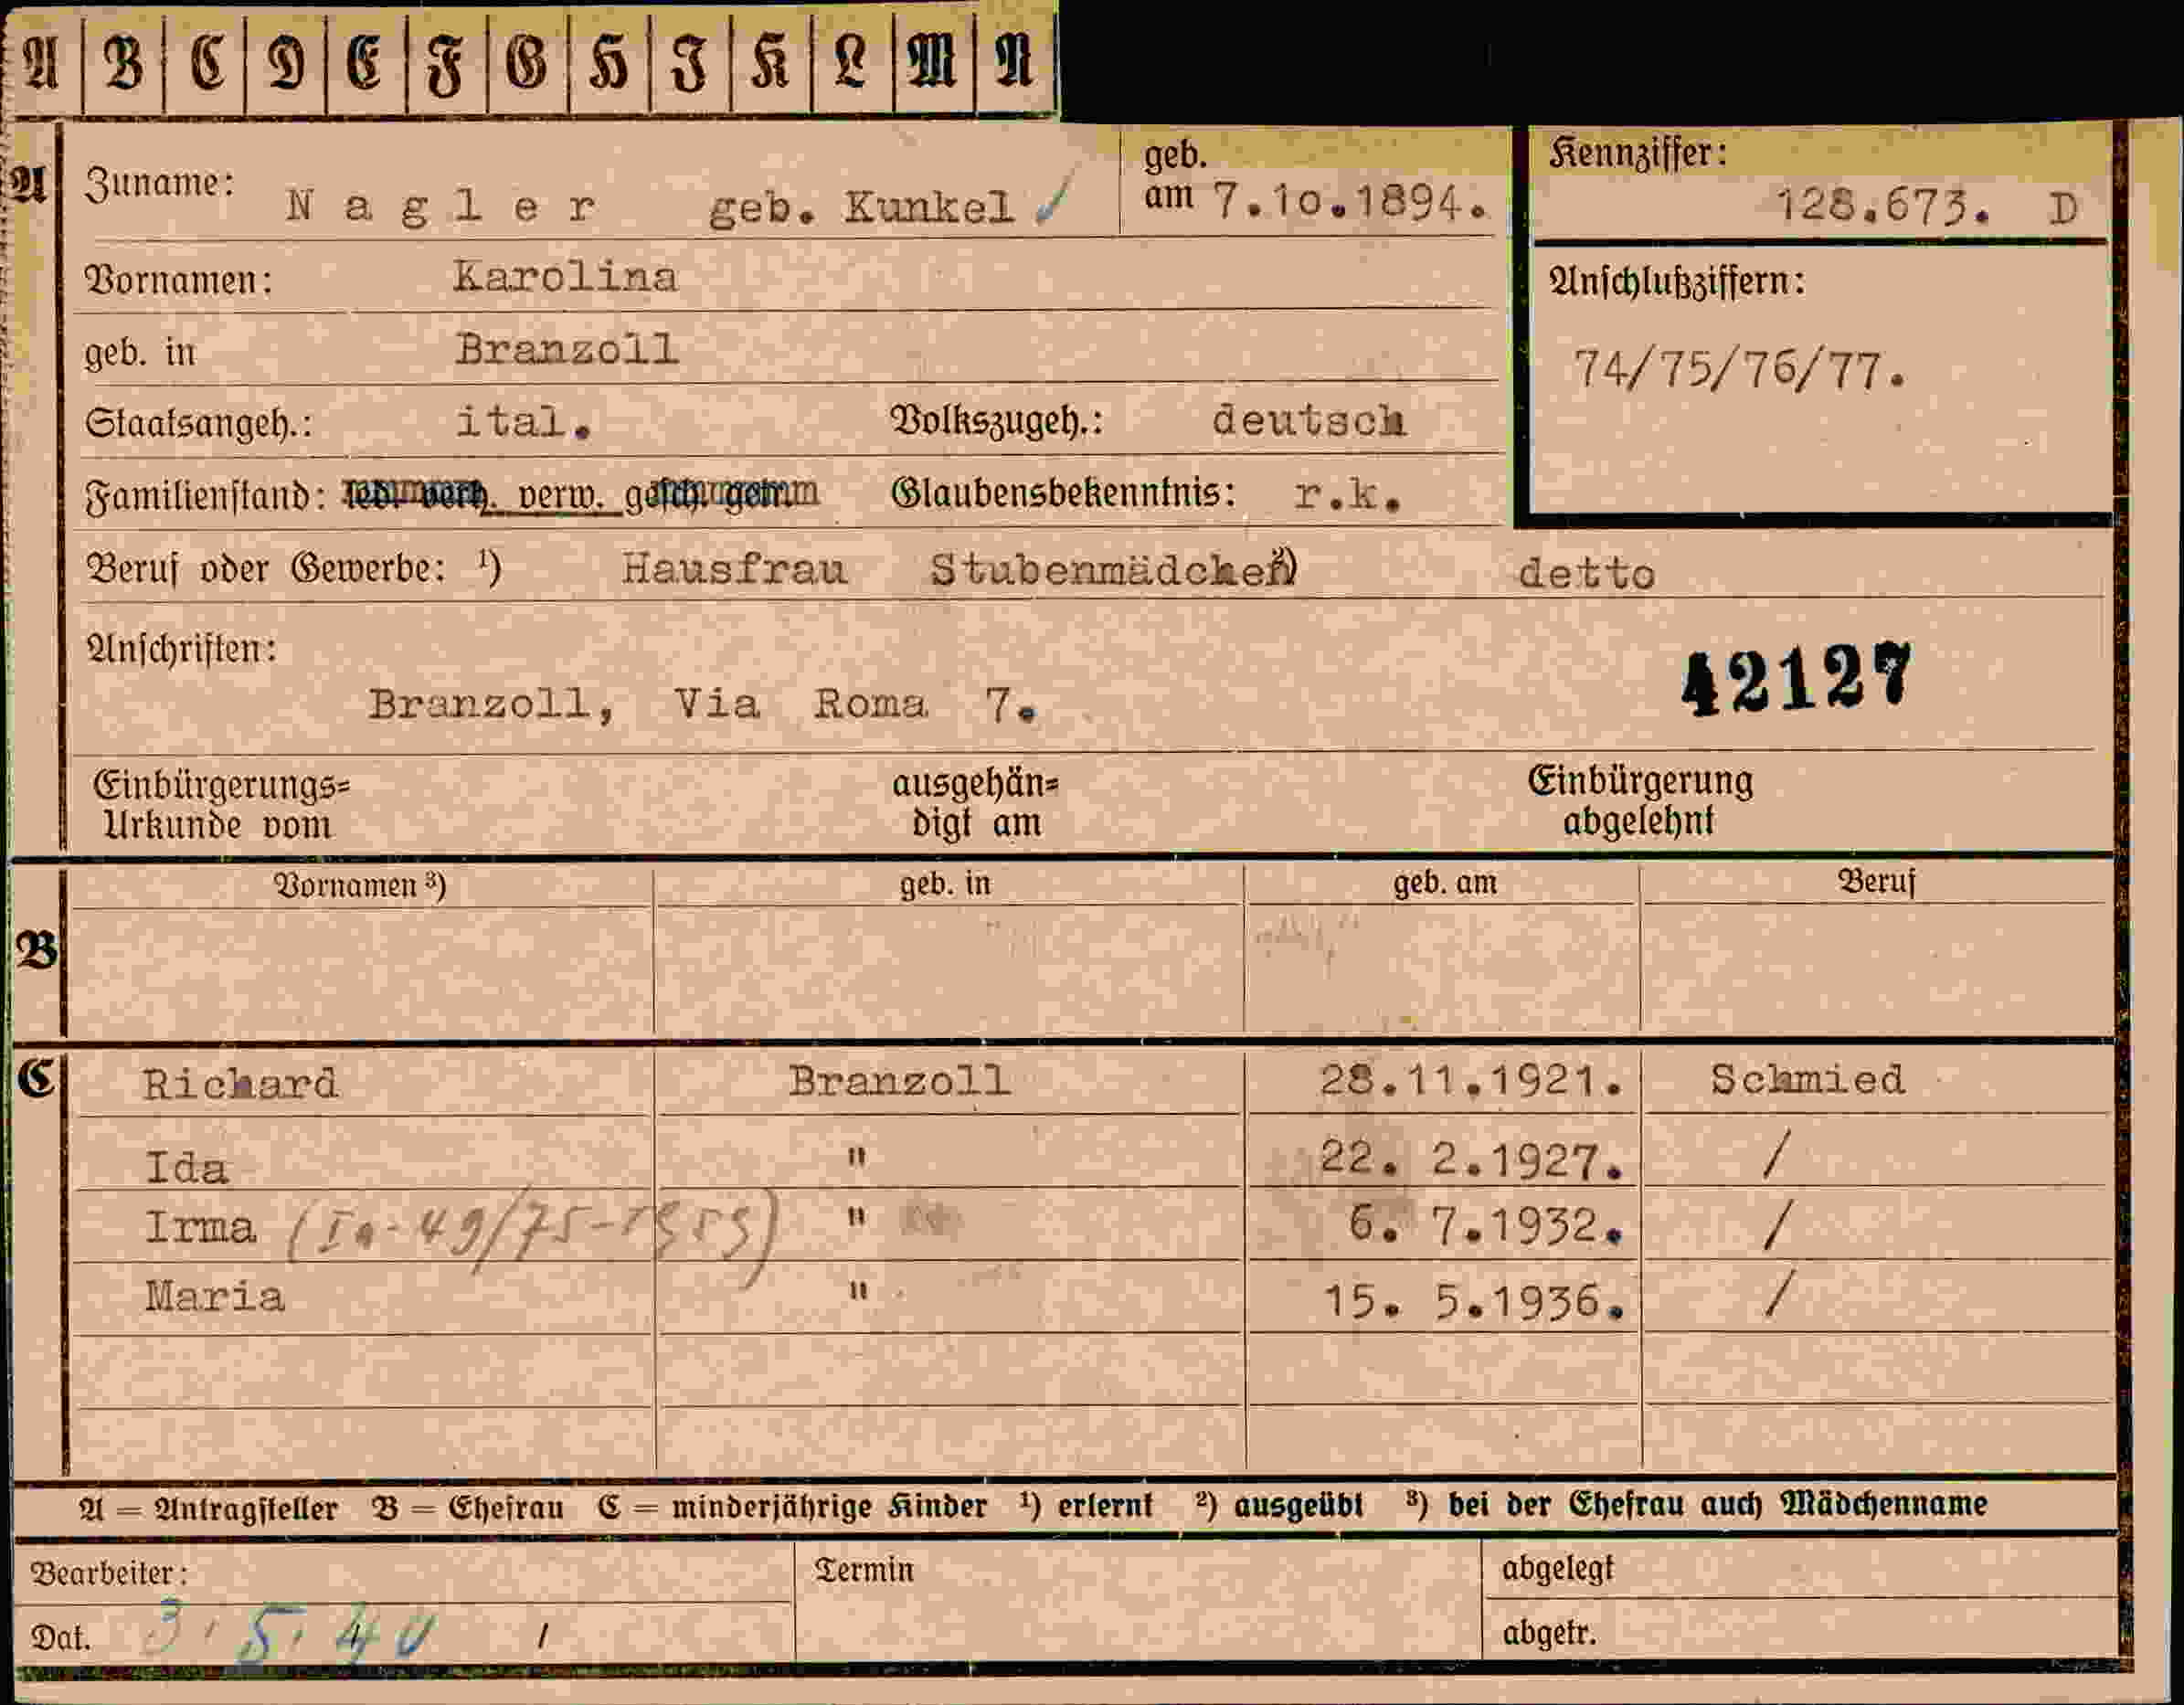 A B C D E F G H I K L M N
A Zuname: Nagler geb. Kunkel geb. am 7.10.1894. Kennziffer: 128.673. D
Vornamen: Karolina Anschlußziffern:
geb. in Branzoll 74/75/76/77.
Staatsangeh.: ital. Volkszugeh.: deutsch
Familienstand: verw. Glaubensbekenntnis: r.k.
Beruf oder Gewerbe: ¹) Hausfrau Stubenmädchen ²) detto
Anschriften: 42127
Branzoll, Via Roma 7.
Einbürgerungs= ausgehän= Einbürgerung
Urkunde vom digt am abgelehnt
Vornamen ³) geb. in geb. am Beruf
B
C Richard Branzoll 28.11.1921. Schmied
Ida " 22. 2.1927. /
Irma " 6. 7.1932. /
Maria " 15. 5.1936. /
A = Antragsteller B = Ehefrau C = minderjährige Kinder ¹) erlernt ²) ausgeübt ³) bei der Ehefrau auch Mädchenname
Bearbeiter: Termin abgelegt
Dat. 3.5.40 / abgetr.